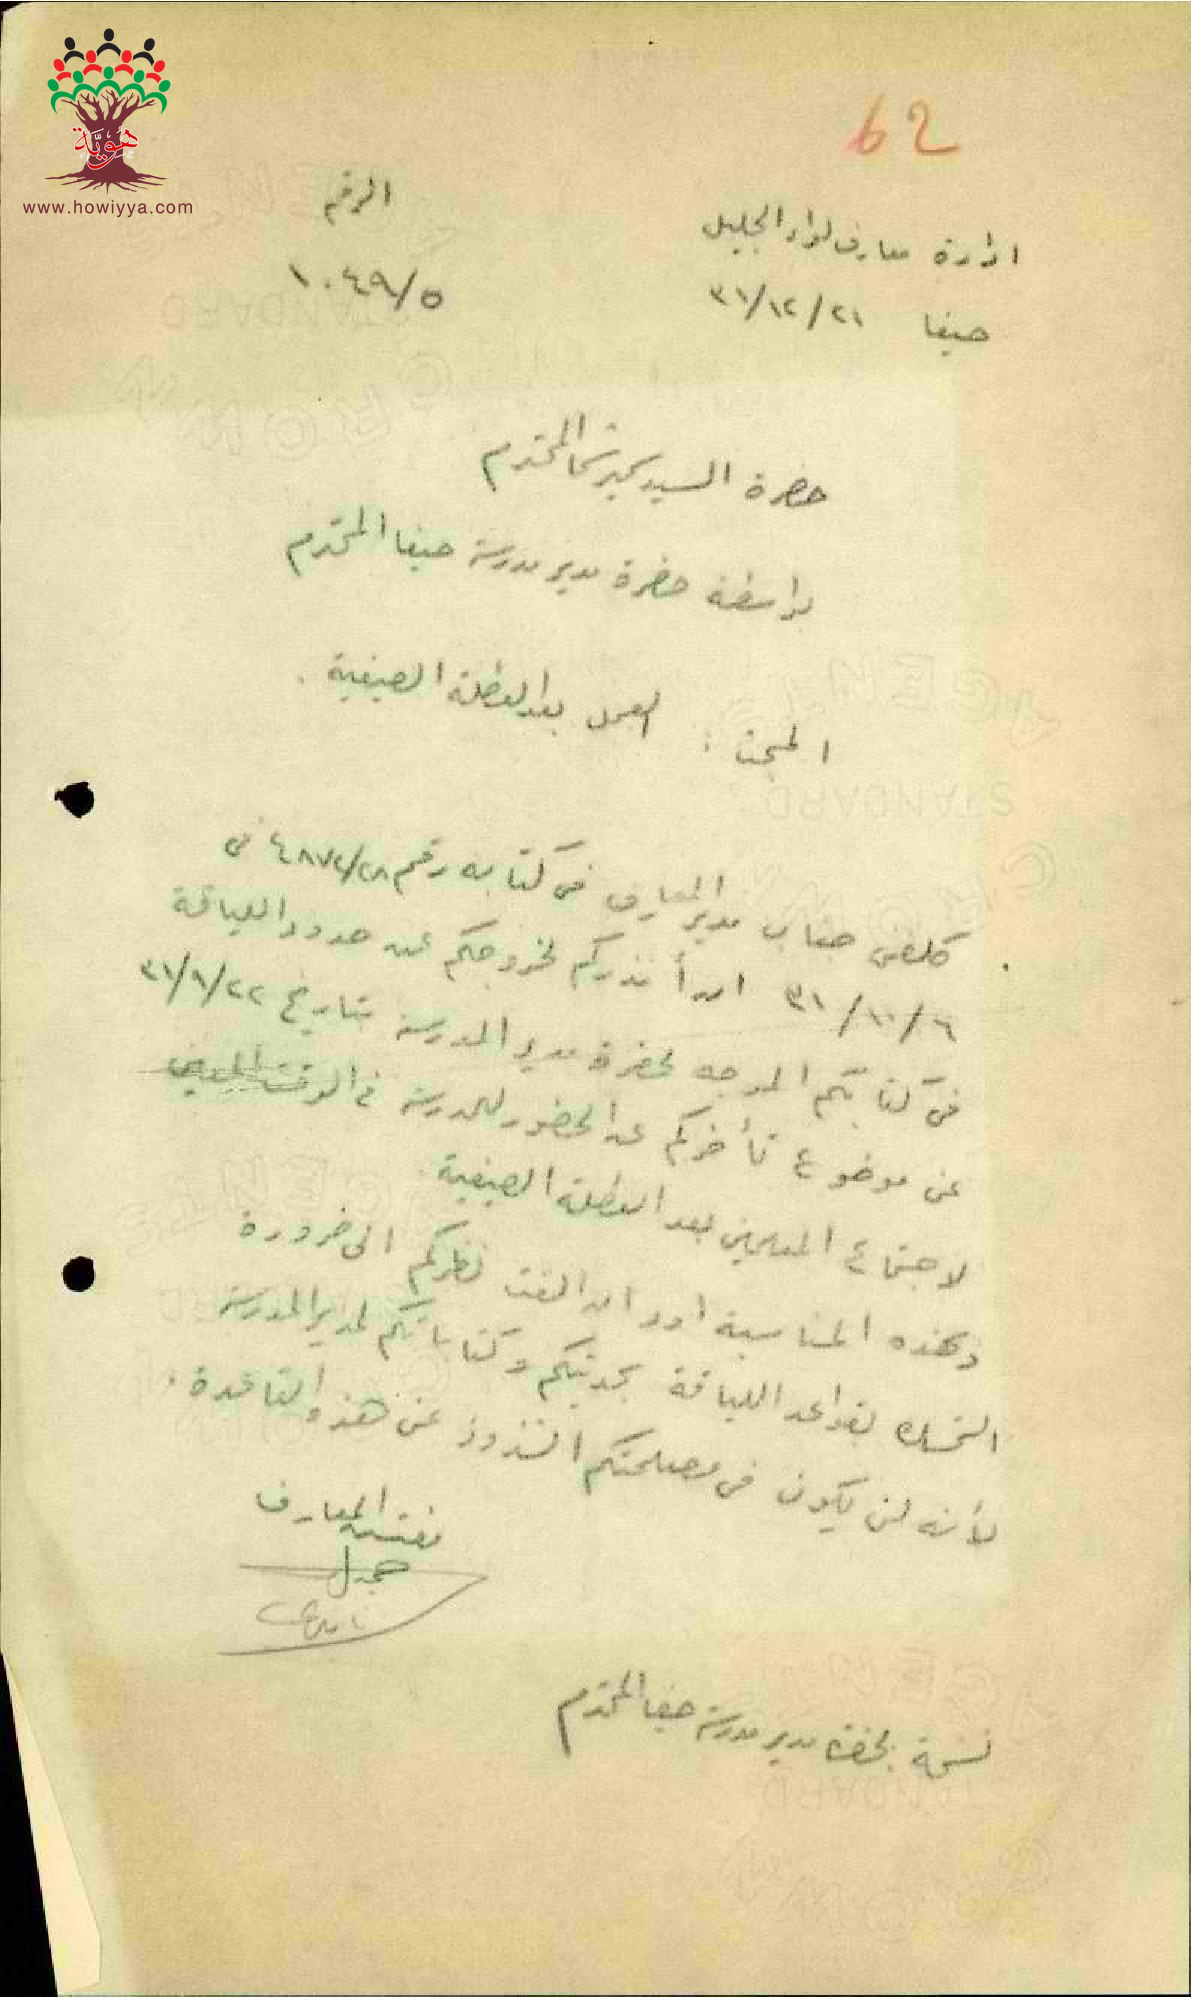 هوية
www.howiyya.com
62
ادارة معارف لواء الجليل
الرقم
حيفا ٢١/١٢/٣١
١٠٤٩/٥
حضرة السيد المحترم
بواسطة حضرة مدير مدرسة حيفا المحترم
المبحث : العمل بعد العطلة الصيفية .
كلفني جناب مدير المعارف في كتابه رقم ٤٨٧٢/٢٨ في
٦/١٠/٣١ ان أنذركم لخروجكم عن حدود اللياقة
في كتابكم الموجه لحضرة مدير المدرسة بتاريخ ٢٢/٩/٣١
عن موضوع تأخركم عن الحضور للمدرسة في الوقت المعين
لاجتماع المعلمين بعد العطلة الصيفية .
وبهذه المناسبة اود ان الفت نظركم الى ضرورة
التمسك بقواعد اللياقة بحديثكم وكتاباتكم لمدير المدرسة
لأنه لن يكون في مصلحتكم الشذوذ عن هذه القاعدة .
مفتش المعارف
نسخة لحضرة مدير مدرسة حيفا المحترم